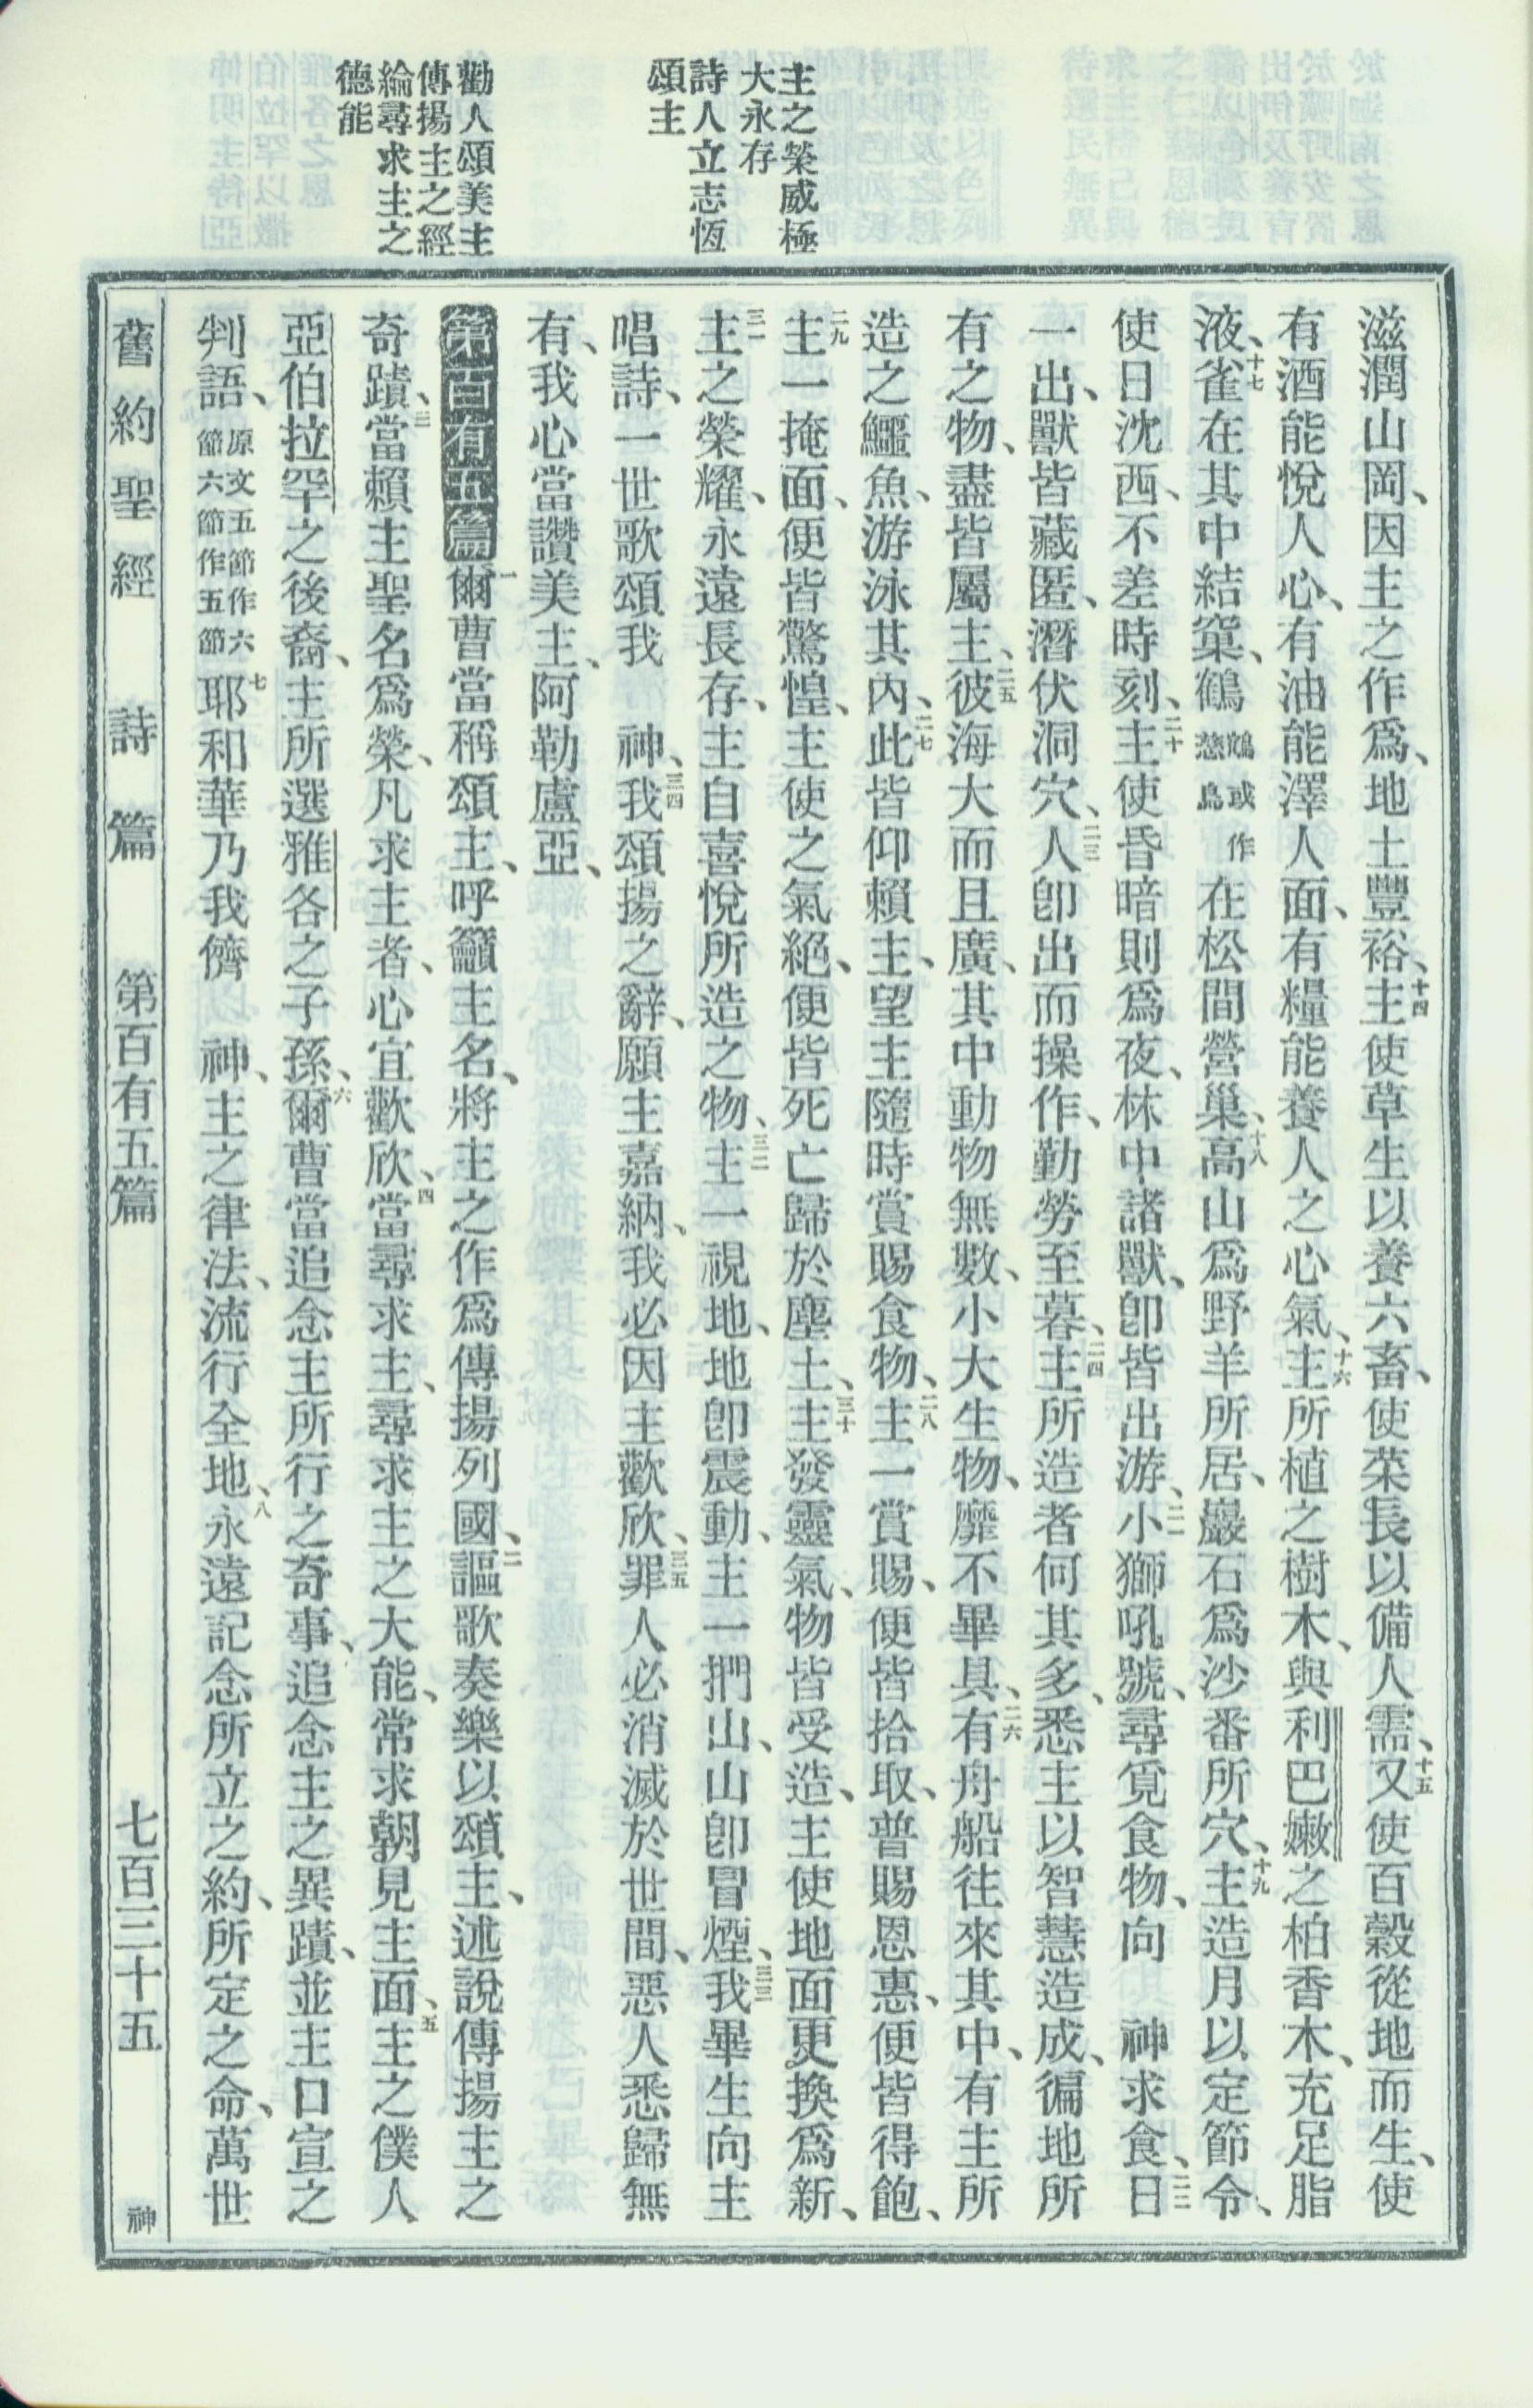 主之榮威極
大永存
詩人立志恆
頌主
勸人頌美主
傳揚主之經
綸尋求主之
德能
滋潤山岡、因主之作爲、地土豐裕、十四主使草生以養六畜、使菜長以備人需、十五又使百穀從地而生、使
有酒能悅人心、有油能澤人面、有糧能養人之心氣、十六主所植之樹木、與利巴嫩之柏香木、充足脂
液、十七雀在其中結窠、鶴鶴或作慈鳥在松間營巢、十八高山爲野羊所居、巖石爲沙番所穴、十九主造月以定節令、
使日沈西、不差時刻、二十主使昏暗則爲夜、林中諸獸、卽皆出游、二一小獅吼號、尋覓食物、向　神求食、二二日
一出、獸皆藏匿、潛伏洞穴、二三人卽出而操作、勤勞至暮、二四主所造者何其多、悉主以智慧造成、徧地所
有之物、盡皆屬主、二五彼海大而且廣、其中動物無數、小大生物、靡不畢具、二六有舟船往來其中、有主所
造之鱷魚、游泳其內、二七此皆仰賴主、望主隨時賞賜食物、二八主一賞賜、便皆拾取、普賜恩惠、便皆得飽、
二九主一掩面、便皆驚惶、主使之氣絕、便皆死亡歸於塵土、三十主發靈氣、物皆受造、主使地面更換爲新、
三一主之榮耀、永遠長存、主自喜悅所造之物、三二主一視地、地卽震動、主一捫山、山卽冒煙、三三我畢生向主
唱詩、一世歌頌我　神、三四我頌揚之辭、願主嘉納、我必因主歡欣、三五罪人必消滅於世間、惡人悉歸無
有、我心當讚美主、阿勒盧亞、
第百有五篇一爾曹當稱頌主、呼籲主名、將主之作爲傳揚列國、二謳歌奏樂以頌主、述說傳揚主之
奇蹟、三當賴主聖名爲榮、凡求主者、心宜歡欣、四當尋求主、尋求主之大能、常求朝見主面、五主之僕人
亞伯拉罕之後裔、主所選雅各之子孫、六爾曹當追念主所行之奇事、追念主之異蹟、並主口宣之
判語、原文五節作六節六節作五節七耶和華乃我儕　神、主之律法、流行全地、八永遠記念所立之約、所定之命、萬世
舊約聖經　詩篇　第百有五篇　七百三十五　神